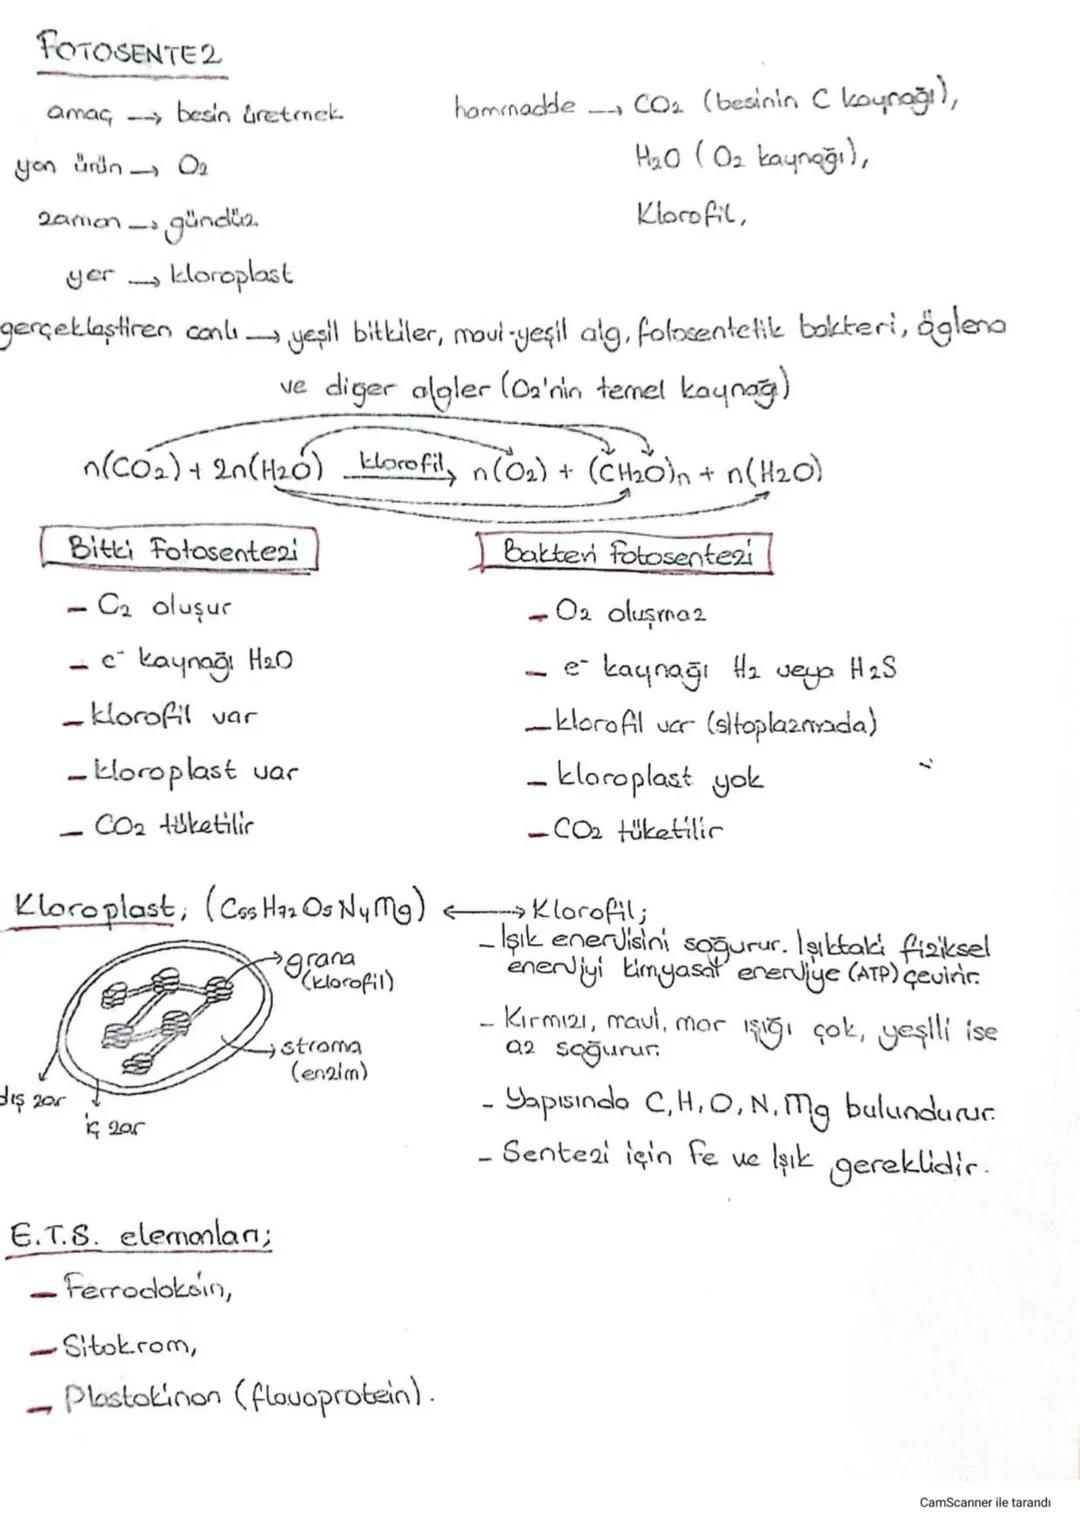 FOTOSENTEZ
amaç → besin üretmek
yan ürün → O2
zaman → gündüz
yer → kloroplast
hammadde → CO2 (besinin C kaynağı),
H2O (O2 kaynağı),
Klorofil,
gerçekleştiren canlı → yeşil bitkiler, mavi-yeşil alg, fotosentetik bakteri, öglena
ve diğer algler (O2'nin temel kaynağı)
n(CO2) + 2n(H2O) klorofil → n(O2) + (CH2O)n + n(H2O)
Bitki Fotosentezi
- O2 oluşur
- e⁻ kaynağı H2O
- klorofil var
- kloroplast var
- CO2 tüketilir
Bakteri fotosentezi
- O2 oluşmaz
- e⁻ kaynağı H2 veya H2S
- klorofil var (sitoplazmada)
- kloroplast yok
- CO2 tüketilir
Kloroplast; (C55H72O5N4Mg) ↔ Klorofil;
grana
(klorofil)
stroma
(enzim)
dış zar
iç zar
- Işık enerjisini soğurur. Işıktaki fiziksel
enerjiyi kimyasal enerjiye (ATP) çevirir.
- Kırmızı, mavi, mor ışığı çok, yeşili ise
az soğurur.
- Yapısında C, H, O, N, Mg bulundurur.
- Sentezi için Fe ve Işık gereklidir.
E.T.S. elemanları;
- Ferrodoksin,
- Sitokrom,
- Plastokinon (flavoprotein).
CamScanner ile tarandı